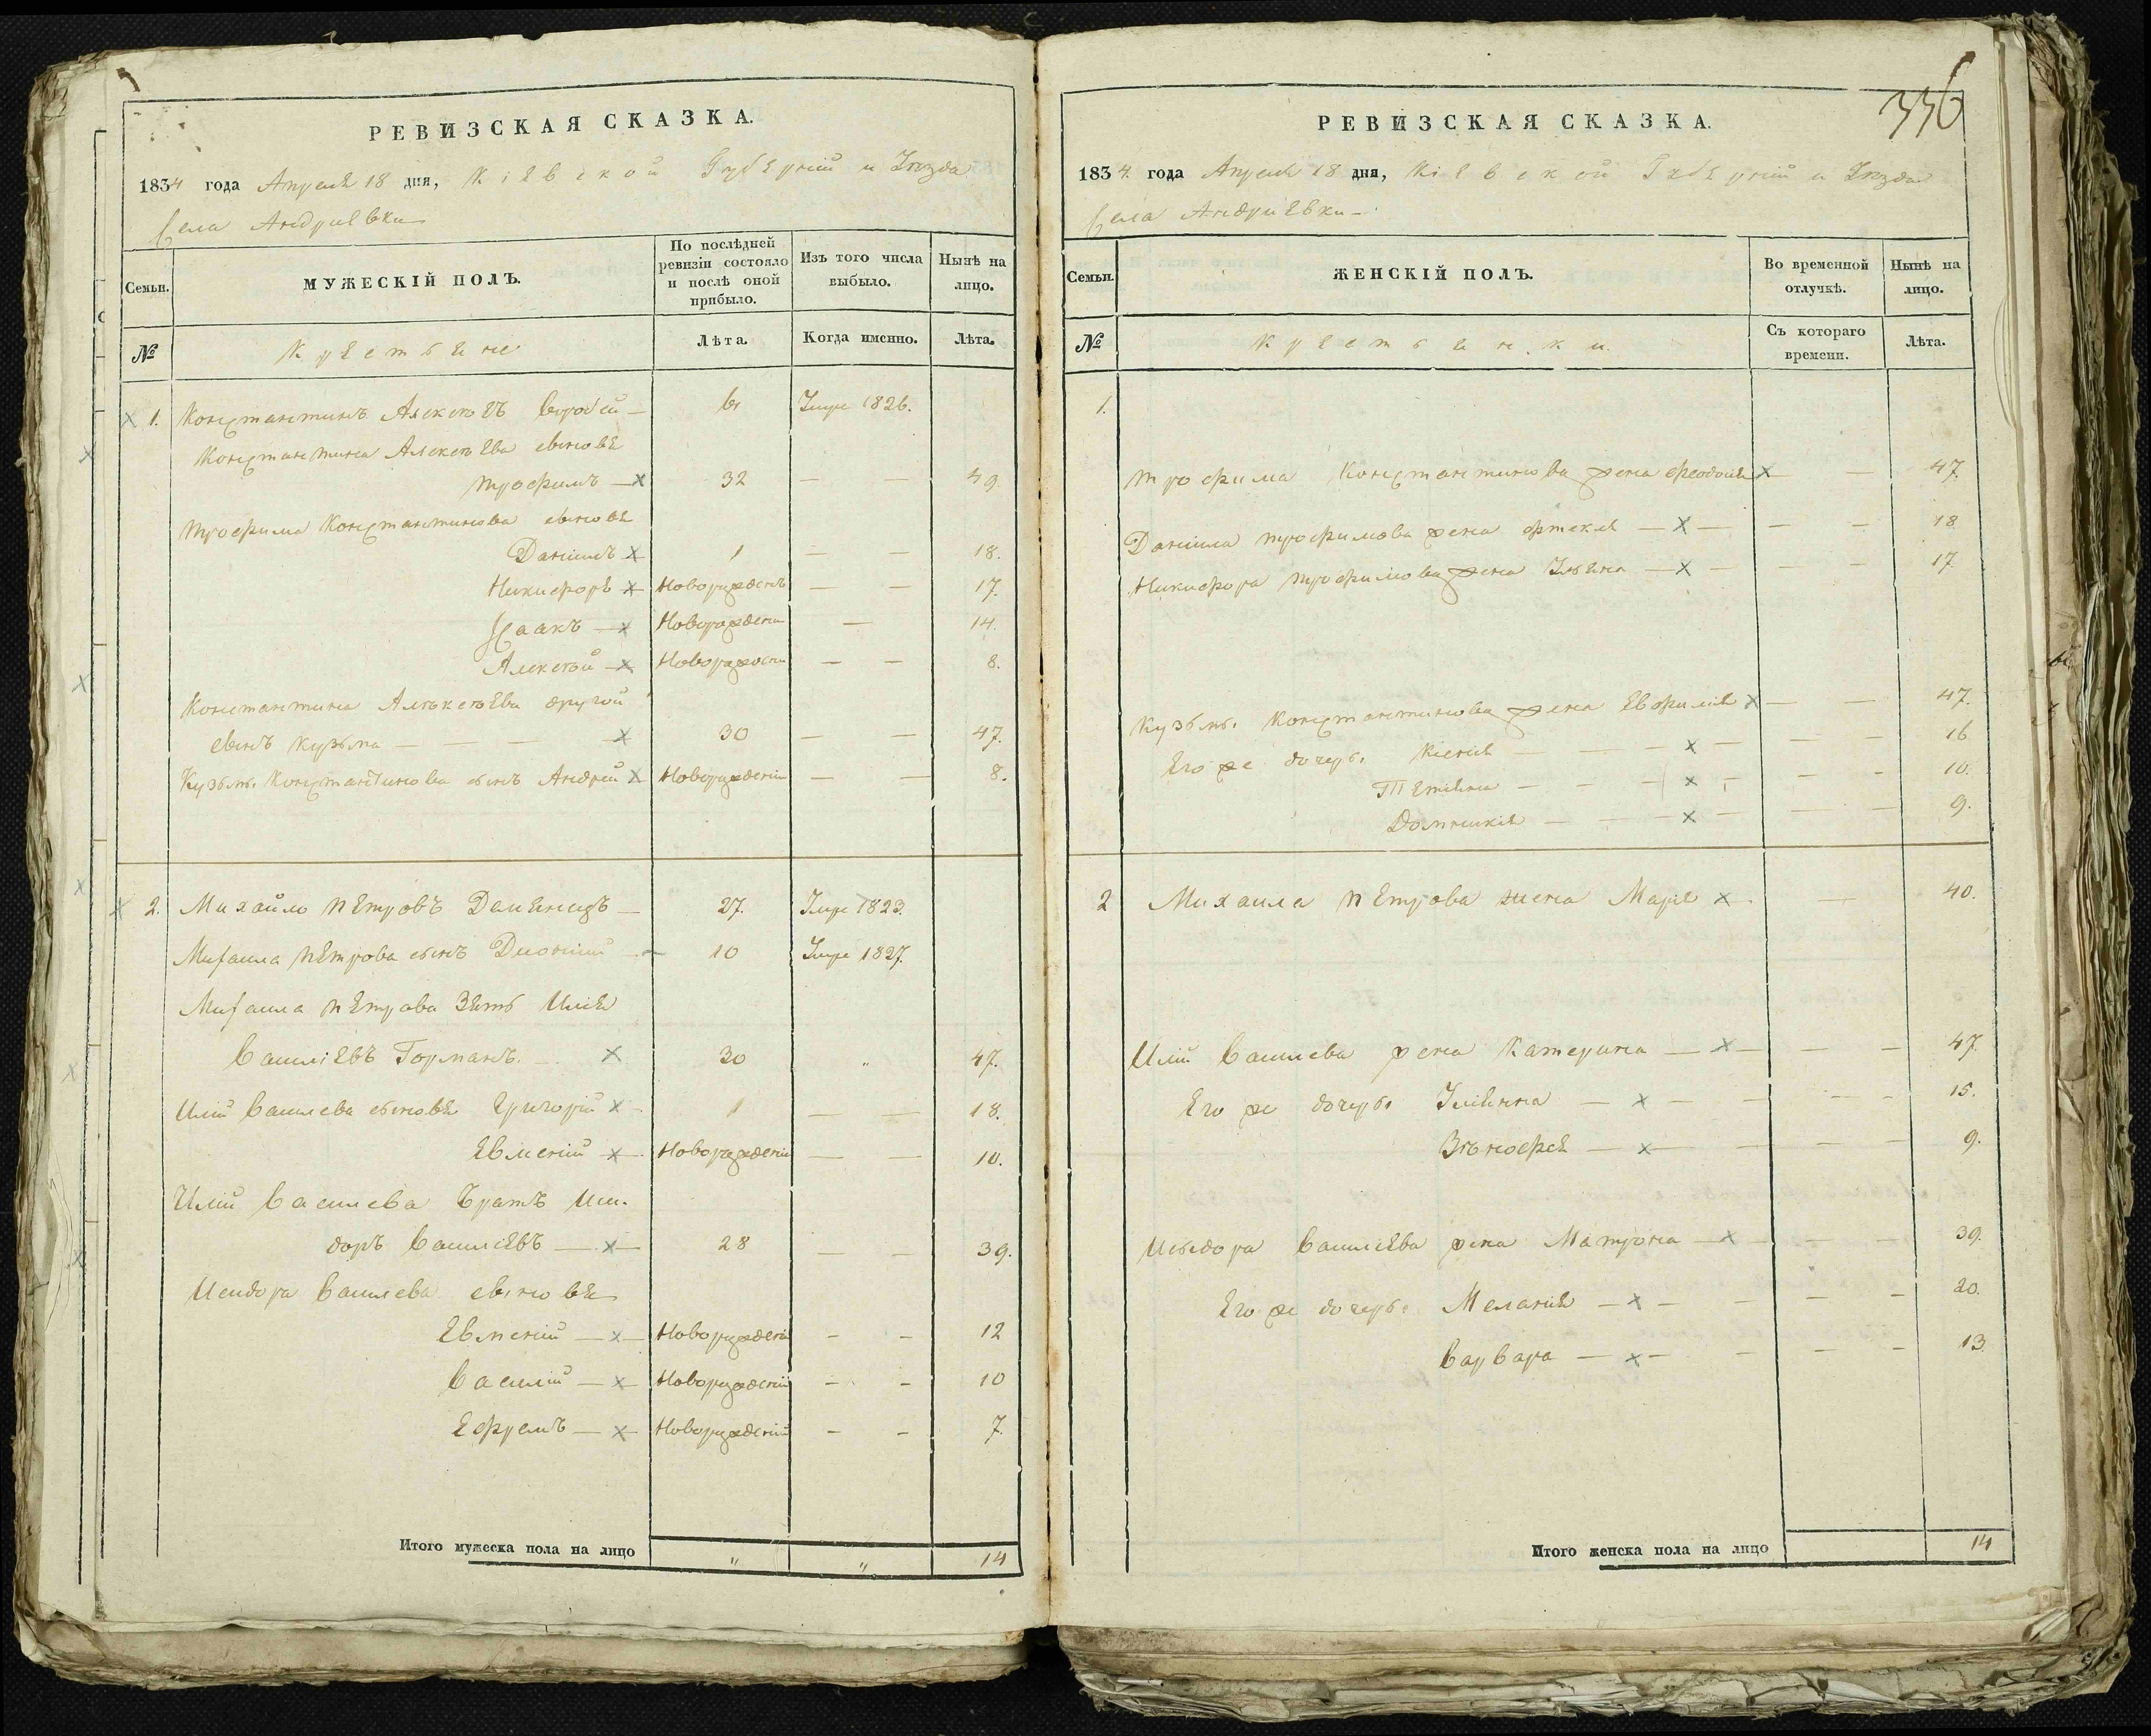 РЕВИЗСКАЯ СКАЗКА.
1834 года Апреля 18 дня, Кіевской Губерніи и Уѣзда
Села Андріевки
Семьи.
МУЖЕСКІЙ ПОЛЪ.
По послѣдней ревизіи состояло и послѣ оной прибыло.
Изъ того числа выбыло.
Нынѣ на лицо.
№
Крестьяне
Лѣта.
Когда именно.
Лѣта.
1. Константинъ Алексѣевъ Воробей — 61 Умре 1826.
Константина Алексѣева сыновья
Трофимъ — 32 — — 49.
Трофима Константинова сыновья
Даніилъ 1 — — 18.
Никифоръ Новорожденъ — — 17.
Исаакъ — Новорожденъ — 14.
Алексѣй — — — 8.
Константина Алѣксѣева другой
сынъ Кузьма — — — 30 — — 47.
Кузьмы Константинова сынъ Андрей Новорожденій — — 8.
2. Михайло Петровъ — 27. Умре 1823.
Михаила Петрова сынъ Діонисій — 10 Умре 1827.
Михаила Петрова Зять Илія
Василіевъ Горманъ. 30 „ 47.
Иліи Василева сыновья Григорій 1 — — 18.
Евменій Новорожденій — — 10.
Иліи Василева Братъ Иси-
доръ Василіевъ — 28 — — 39.
Исидора Василева сыновья
Евменій — Новорожденій - - 12
Василій — Новорожденій - - 10
Ефремъ — Новорожденій - - 7.
Итого мужеска пола на лицо „ „ 14
336
РЕВИЗСКАЯ СКАЗКА.
1834. года Апреля 18 дня, Кіевской Губерніи и Уѣзда
Села Андріевки —
Семьи.
ЖЕНСКІЙ ПОЛЪ.
Во временной отлучкѣ.
Нынѣ на лицо.
№
Крестьянки.
Съ котораго времени.
Лѣта.
1.
Трофима Константинова жена Феодосія — 47.
Даніила Трофимова жена — — — 18
Никифора Трофимова жена Ульяна — — — 17
Кузьмы Константинова жена Евфимія — — 47.
Его же дочеры Ксенія — — — 16
Тетяна — — — 10.
Домникія — — — 9.
2 Михаила Петрова жена Марія — 40.
Иліи Василева жена Катерина — — — 47
Его же дочеры Уліянна — — — 15.
Зѣнофія — — — 9.
Исыдора Василіева жена Матрона — — 39.
Его же дочеры Меланія — — - 20.
Варвара — — - 13.
Итого женска пола на лицо 14